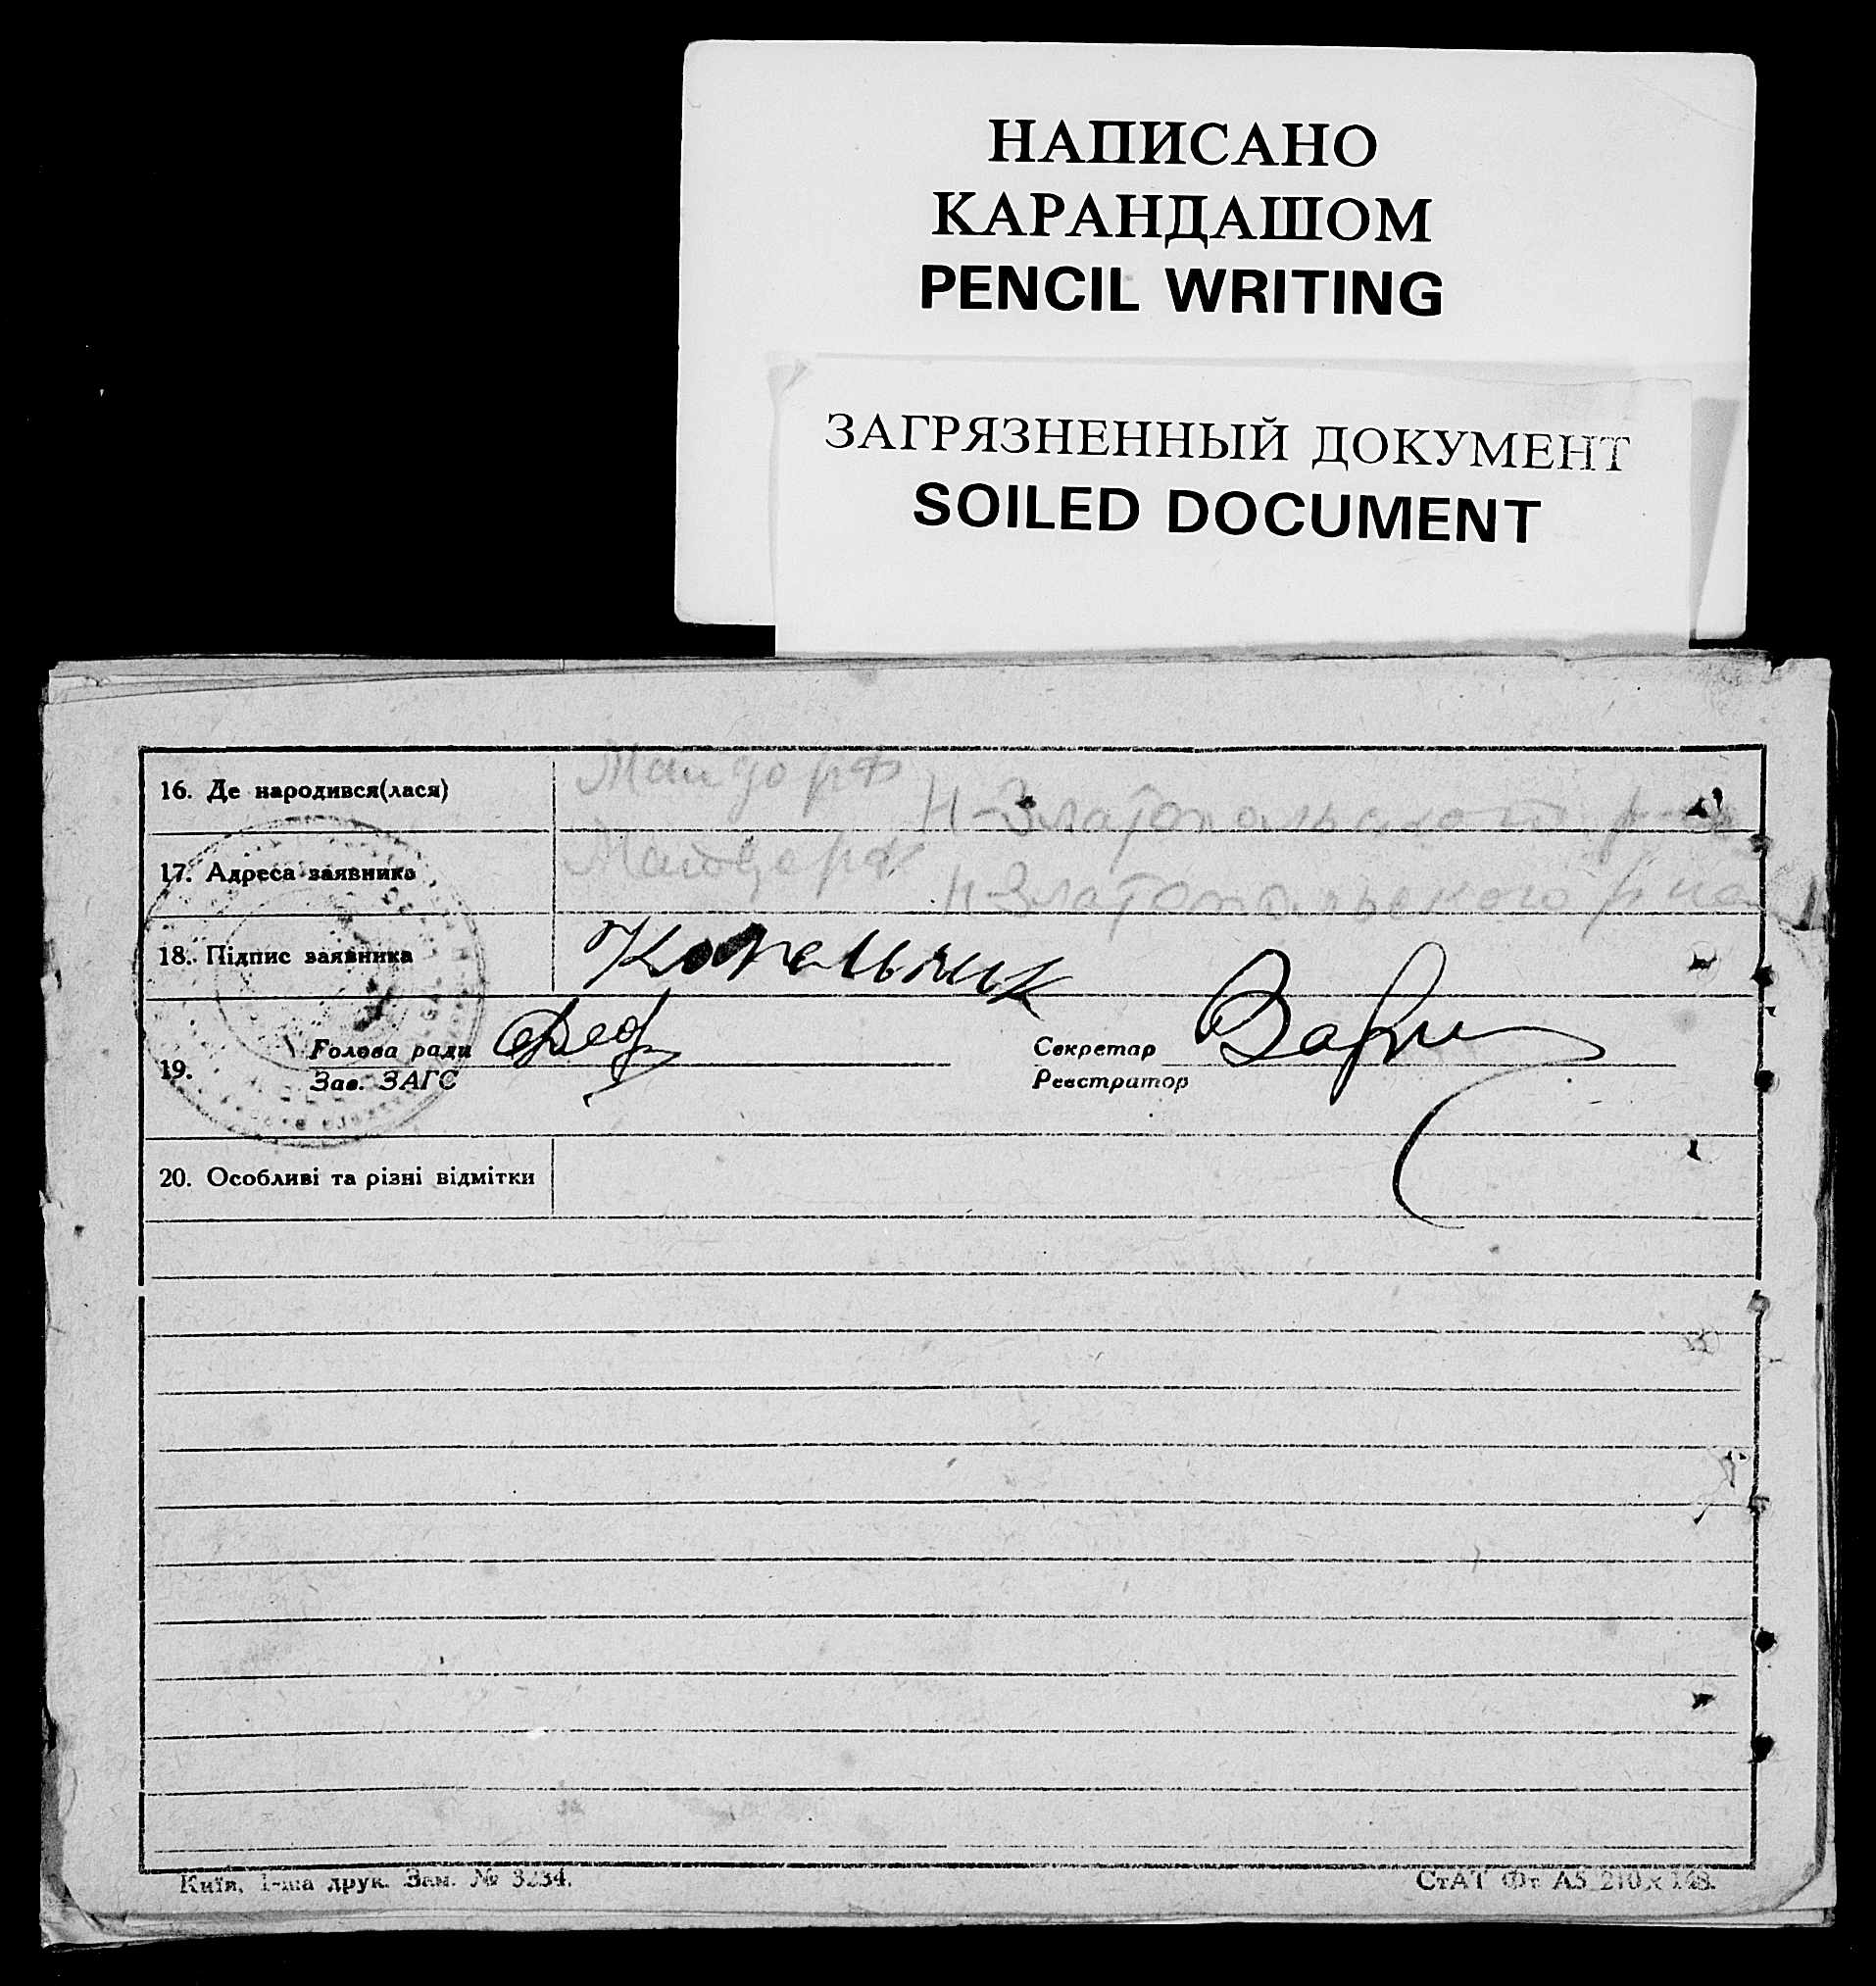 НАПИСАНО
КАРАНДАШОМ
PENCIL WRITING
ЗАГРЯЗНЕННЫЙ ДОКУМЕНТ
SOILED DOCUMENT
16. Де народився(лася) Майдорф
Н-Златопольского р-на
17. Адреса заявника Майдорф
Н-Златопольского р-на
18. Підпис заявника
19. Голова ради
Зав. ЗАГС
Секретар
Реєстратор
20. Особливі та різні відмітки
Київ, 1-ша друк. Зам. № 3234.
СтАТ Фт А5 210×148.